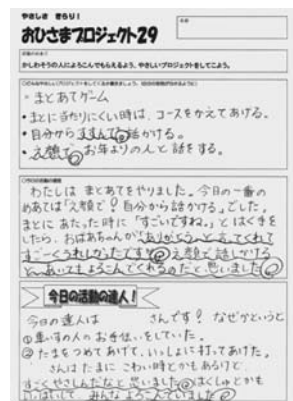 やさしさ きらり!
おひさまプロジェクト29
名前
活動のめあて
かしわそうの人によろこんでもらえるよう、やさしいプロジェクトをしてこよう。
・まとあてゲーム
・まとに当たりにくい時は、コースをかえてあげる。
・自分からすすんで話かける。
・え顔で、お年よりの人と話をする。
○今日の活動の感想
わたしは まとあてをやりました。今日の一番の
めあては「え顔で!自分から話かける」でした。
まとに あたった時に「すごいですね。」とはく手を
したら、おばあちゃんが「ありがとう」と言ってくれて
すごーくうれしかったです。え顔で話しかける
と、あいてもよろこんでくれるのだと思いました
今日の活動の達人!
今日の達人は さんです! なぜかというと
①車いすの人のお手伝いをしていた。
②たまをつめてあげて、いっしょに打ってあげた。
さんは たまに こわい時とかもあるけど
すごくやさしんだなと思いました はくしゅとかも
いっぱいして、みんなよろこんでいました